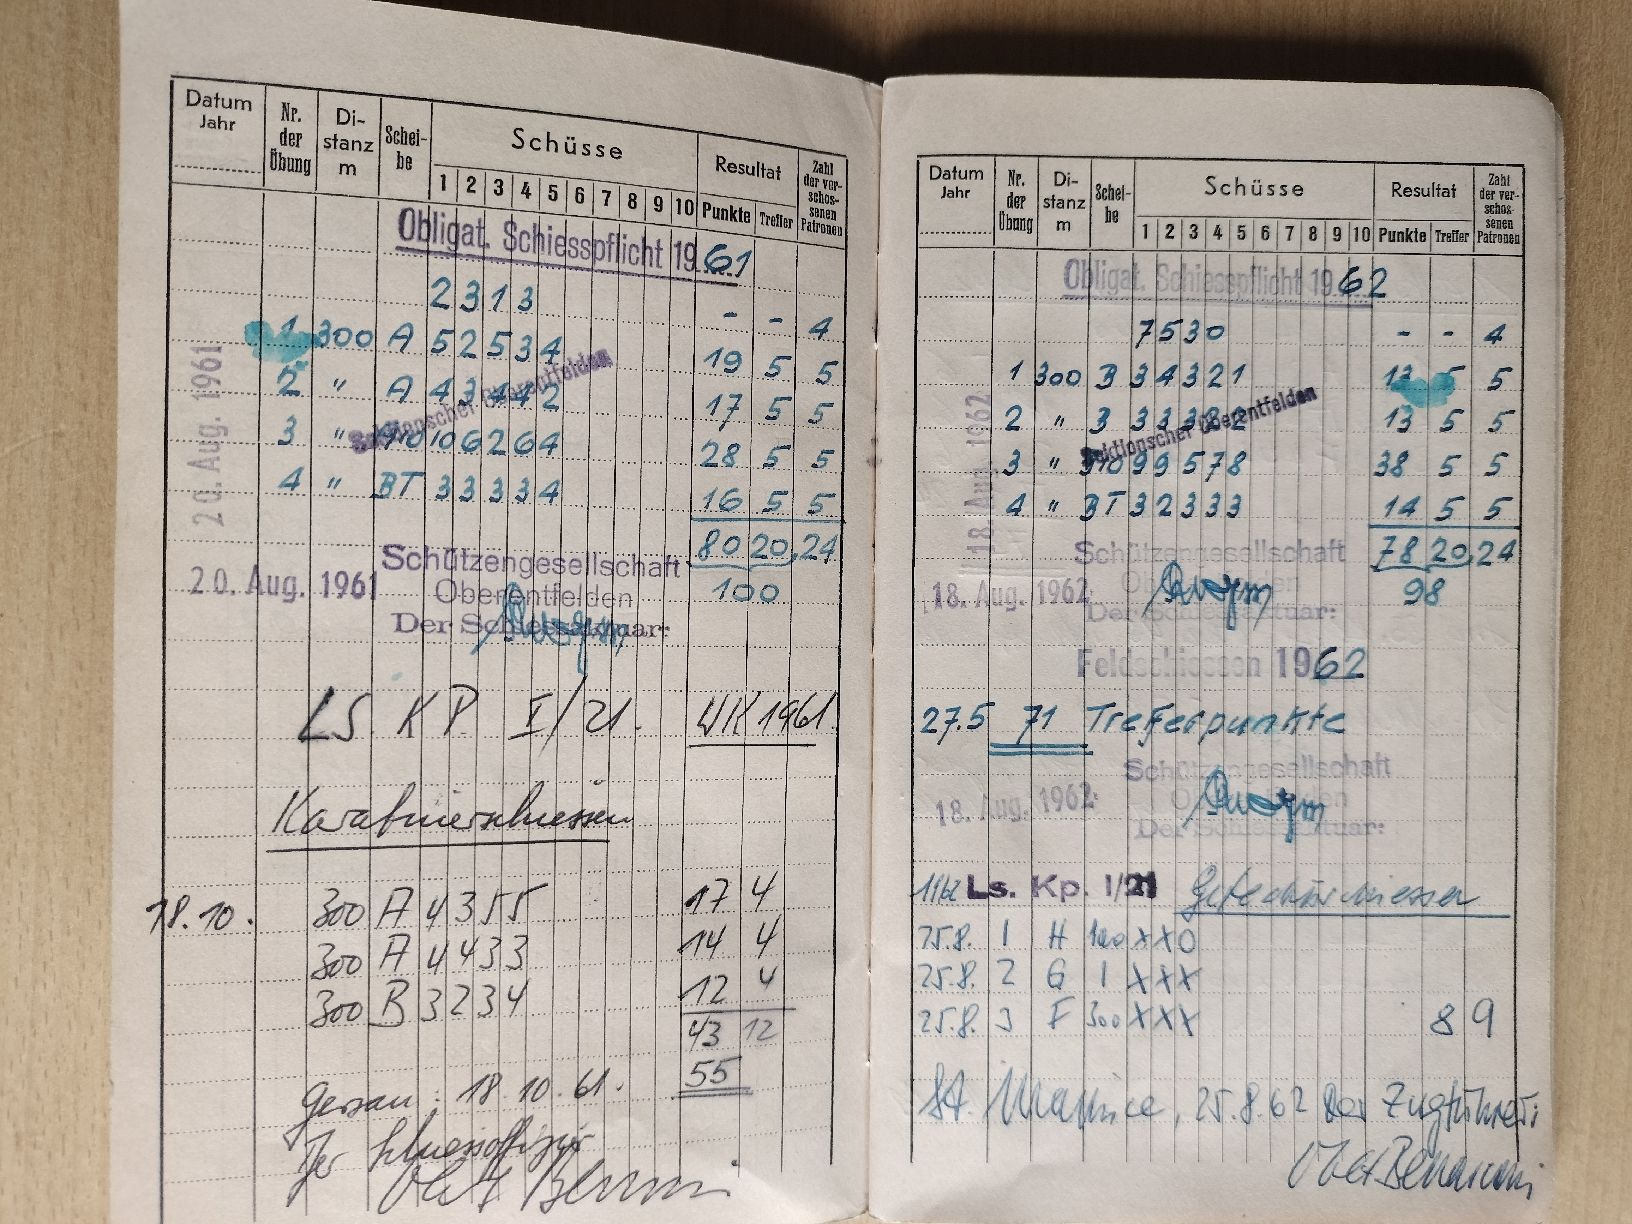 Datum Jahr Nr. der Übung Di-stanz m Schei-be Schüsse Resultat Zahl der ver-schos-senen Patronen
1 2 3 4 5 6 7 8 9 10 Punkte Treffer
Obligat. Schiesspflicht 1961
2 3 1 3 - - 4
1 300 A 5 2 5 3 4 19 5 5
2 " A 4 3 4 4 2 17 5 5
Sektionschef Oberentfelden
3 " 10 6 2 6 4 28 5 5
4 " BT 3 3 3 3 4 16 5 5
20. Aug. 1961
80 20 24
Schützengesellschaft
20. Aug. 1961 Oberentfelden 100
Der Schiessaktuar:
LS. KP. I/21. WK 1961.
Karabinerschiessen
18.10. 300 A 4 3 5 5 17 4
300 A 4 4 3 3 14 4
300 B 3 2 3 4 12 4
43 12
55
Gersau, 18.10.61.
Der Schiessoffizier
Datum Jahr Nr. der Übung Di-stanz m Schei-be Schüsse Resultat Zahl der ver-schos-senen Patronen
1 2 3 4 5 6 7 8 9 10 Punkte Treffer
Obligat. Schiesspflicht 1962
7 5 3 0 - - 4
1 300 B 3 4 3 2 1 13 5 5
2 " B 3 3 3 2 13 5 5
Sektionschef Oberentfelden
3 " 9 9 5 7 8 38 5 5
4 " BT 3 2 3 3 3 14 5 5
18. Aug. 1962
78 20 24
Schützengesellschaft
18. Aug. 1962 98
Der Schiessaktuar:
Feldschiessen 1962
27.5 71 Trefferpunkte
Schützengesellschaft
18. Aug. 1962
Der Schiessaktuar:
Ls. Kp. I/21 Gefechtsschiessen
25.8. 1 H 100 X X O
25.8. 2 G 1 X X X
25.8. 3 F 300 X X X 8 9
St. Maurice, 25.8.62 Der Zugführer: